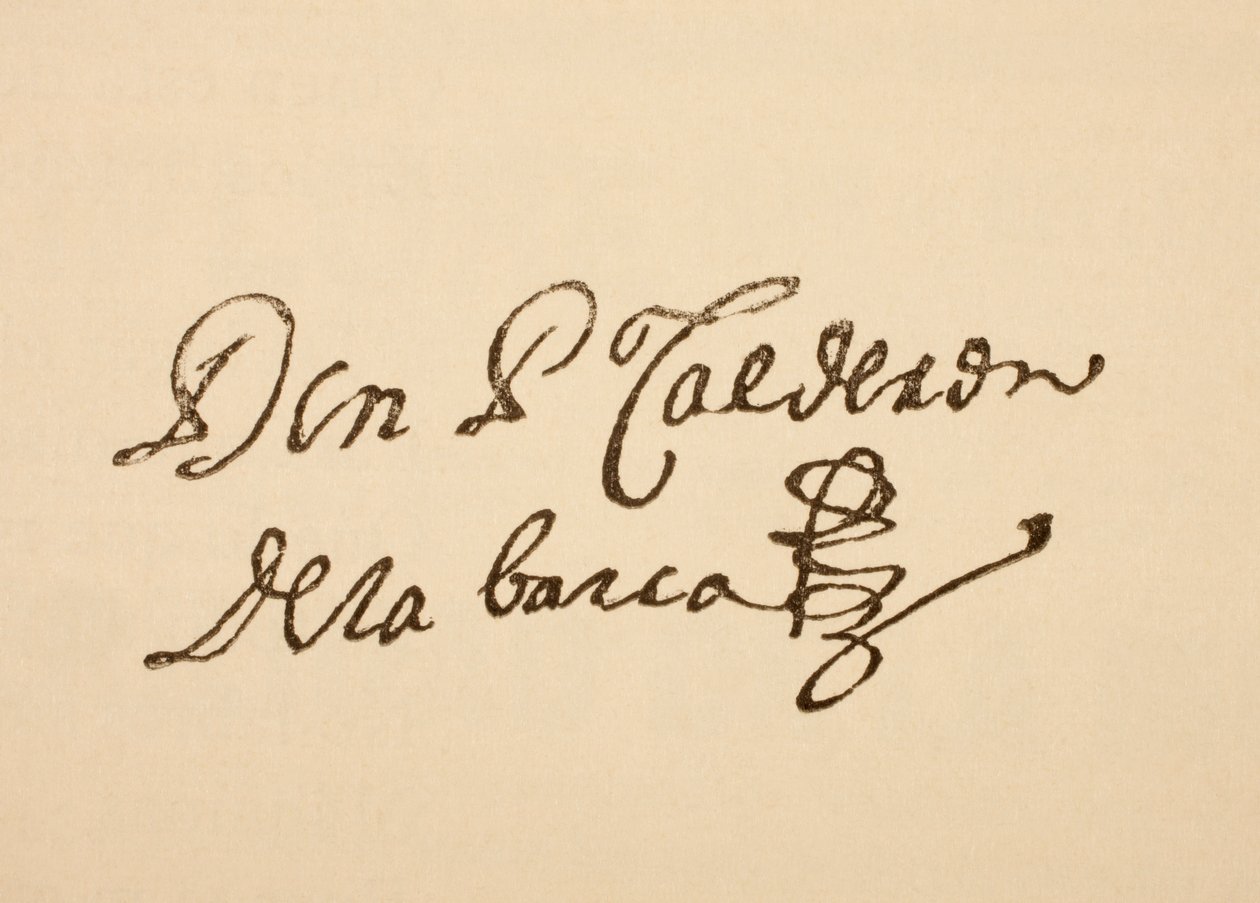 Don P Calderon
dela barca